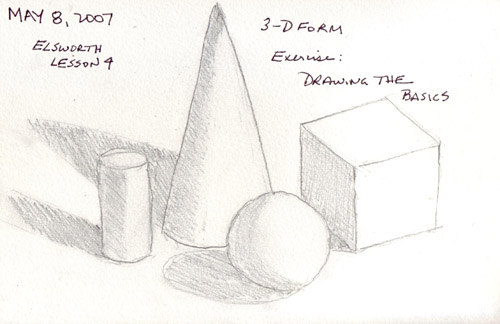 MAY 8, 2007
ELSWORTH
LESSON 4
3-D FORM
Exercise:
DRAWING THE
BASICS